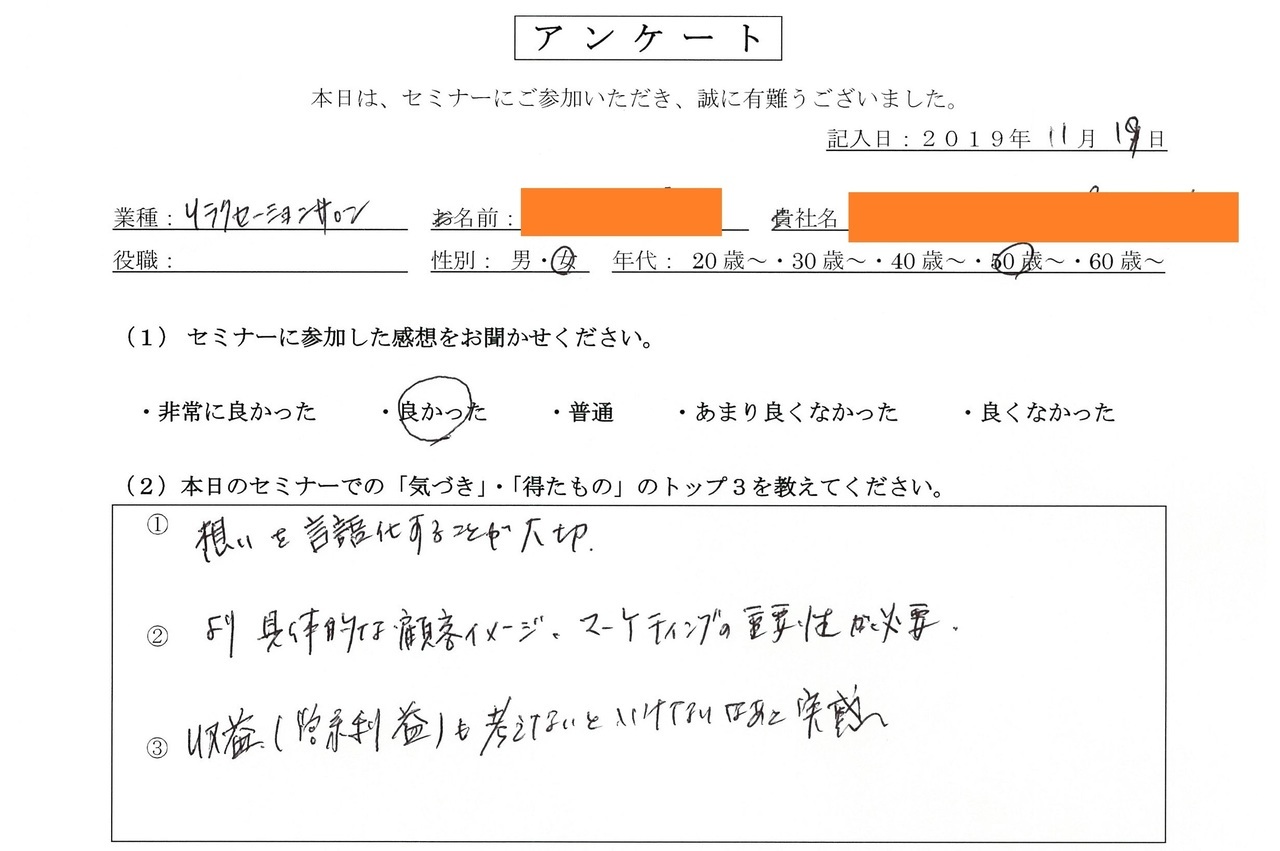 アンケート
本日は、セミナーにご参加いただき、誠に有難うございました。
記入日:2019年 11月 19日
業種:リラクゼーションサロン お名前: 貴社名
役職: 性別: 男・女 年代: 20歳~・30歳~・40歳~・50歳~・60歳~
(1) セミナーに参加した感想をお聞かせください。
・非常に良かった ・良かった ・普通 ・あまり良くなかった ・良くなかった
(2)本日のセミナーでの「気づき」・「得たもの」のトップ3を教えてください。
① 想いを言語化することが大切.
② より具体的な顧客イメージ、マーケティングの重要性が必要.
③ 収益(利益)も考えないといけないなあと実感